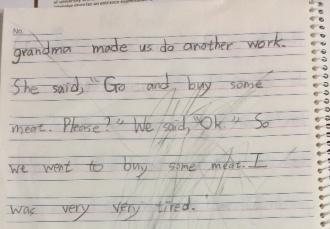 No.
grandma made us do another work.
She said, "Go and buy some
meat. Please?" We said, "Ok." So
we went to buy some meat. I
was very very tired.